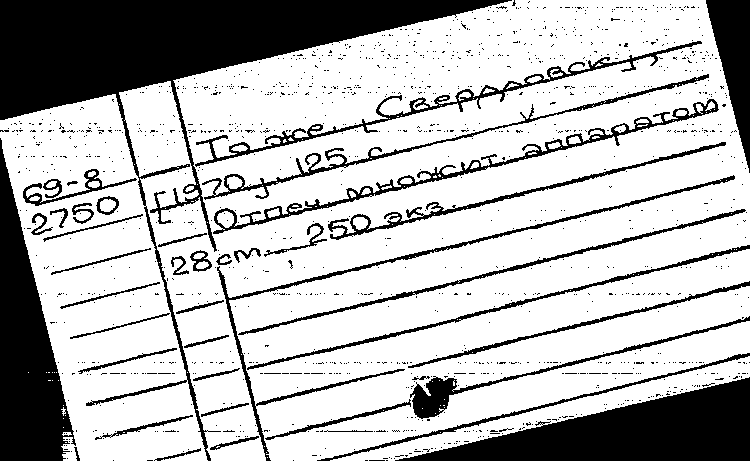 То же. [Свердловск],
69-8 [1970]. 125 с.
2750 Отпеч. множит. аппаратом.
28 cm., 250 экз.